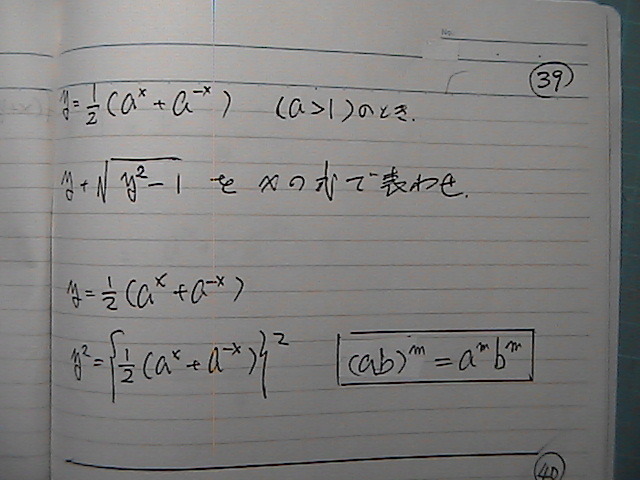 No.
㊴
y = 1/2 (a^x + a^-x) (a > 1) のとき.
y + √(y² - 1) を x の式で表わせ.
y = 1/2 (a^x + a^-x)
y² = {1/2 (a^x + a^-x)}² (ab)^m = a^m b^m
㊵